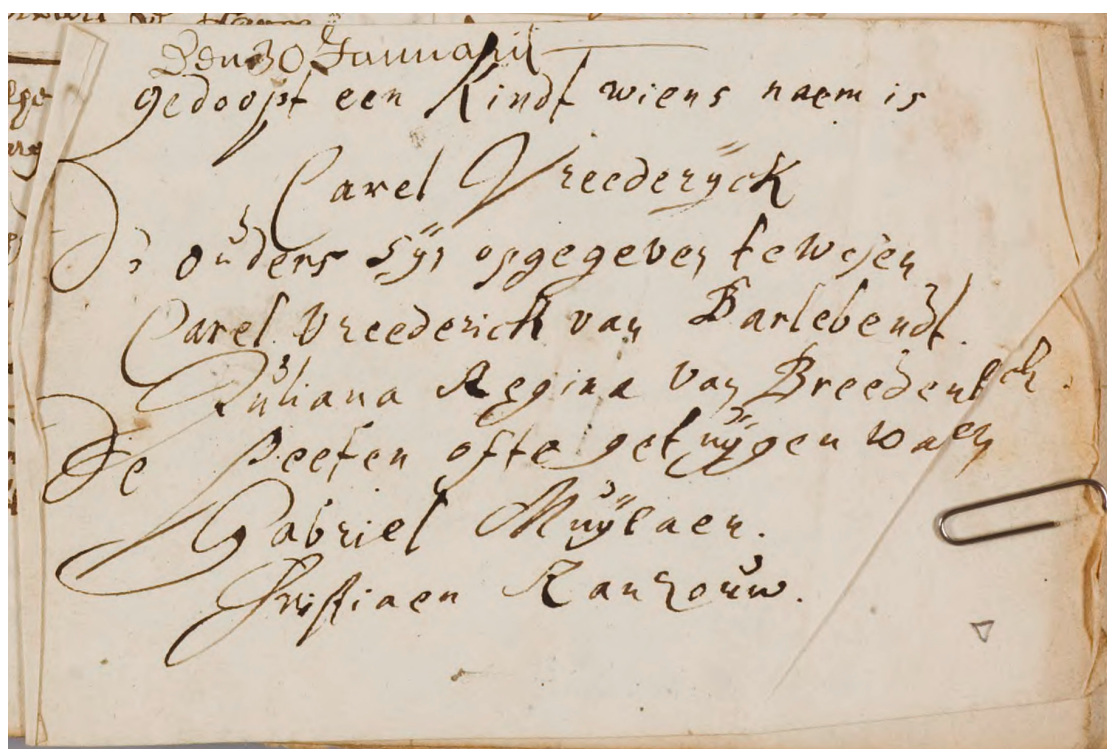 Den 30 Januarij
gedoopt een Kindt wiens naem is
Carel Vreederijck
ouders sijn opgegeven te wesen
Carel Vreederick van Barlebendt.
Juliana Regina van
De Peeten ofte getuijgen waen
Gabriel
Cristiaen Ranzouw.